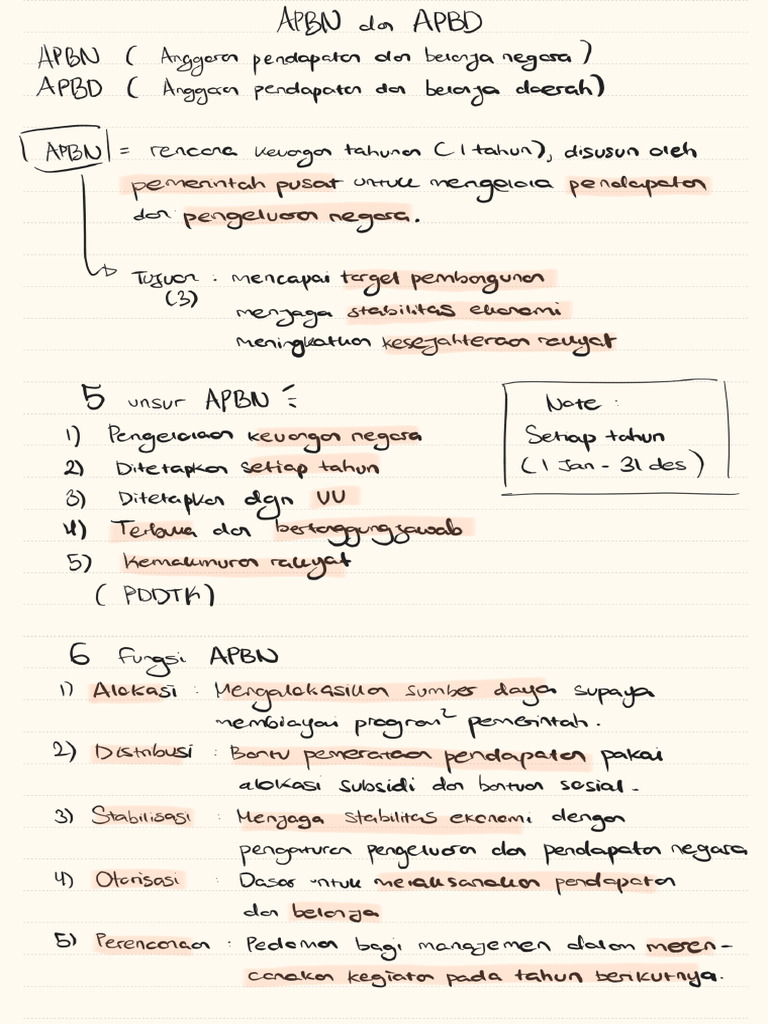 APBN dan APBD
APBN ( Anggaran pendapatan dan belanja negara )
APBD ( Anggaran pendapatan dan belanja daerah)
APBN = rencana keuangan tahunan (1 tahun), disusun oleh
pemerintah pusat untuk mengelola pendapatan
dan pengeluaran negara.
Tujuan : mencapai target pembangunan
(3)
menjaga stabilitas ekonomi
meningkatkan kesejahteraan rakyat
5 unsur APBN :
1) Pengelolaan keuangan negara
2) Ditetapkan setiap tahun
3) Ditetapkan dgn UU
4) Terbuka dan bertanggungjawab
5) Kemakmuran rakyat
( PDDTK )
Note :
Setiap tahun
( 1 Jan - 31 des )
6 Fungsi APBN
1) Alokasi : Mengalokasikan sumber daya supaya
membiayai program² pemerintah.
2) Distribusi : Bantu pemerataan pendapatan pakai
alokasi subsidi dan bantuan sosial.
3) Stabilisasi : Menjaga stabilitas ekonomi dengan
pengaturan pengeluaran dan pendapatan negara
4) Otorisasi : Dasar untuk melaksanakan pendapatan
dan belanja
5) Perencanaan : Pedoman bagi manajemen dalam meren-
canakan kegiatan pada tahun berikutnya.